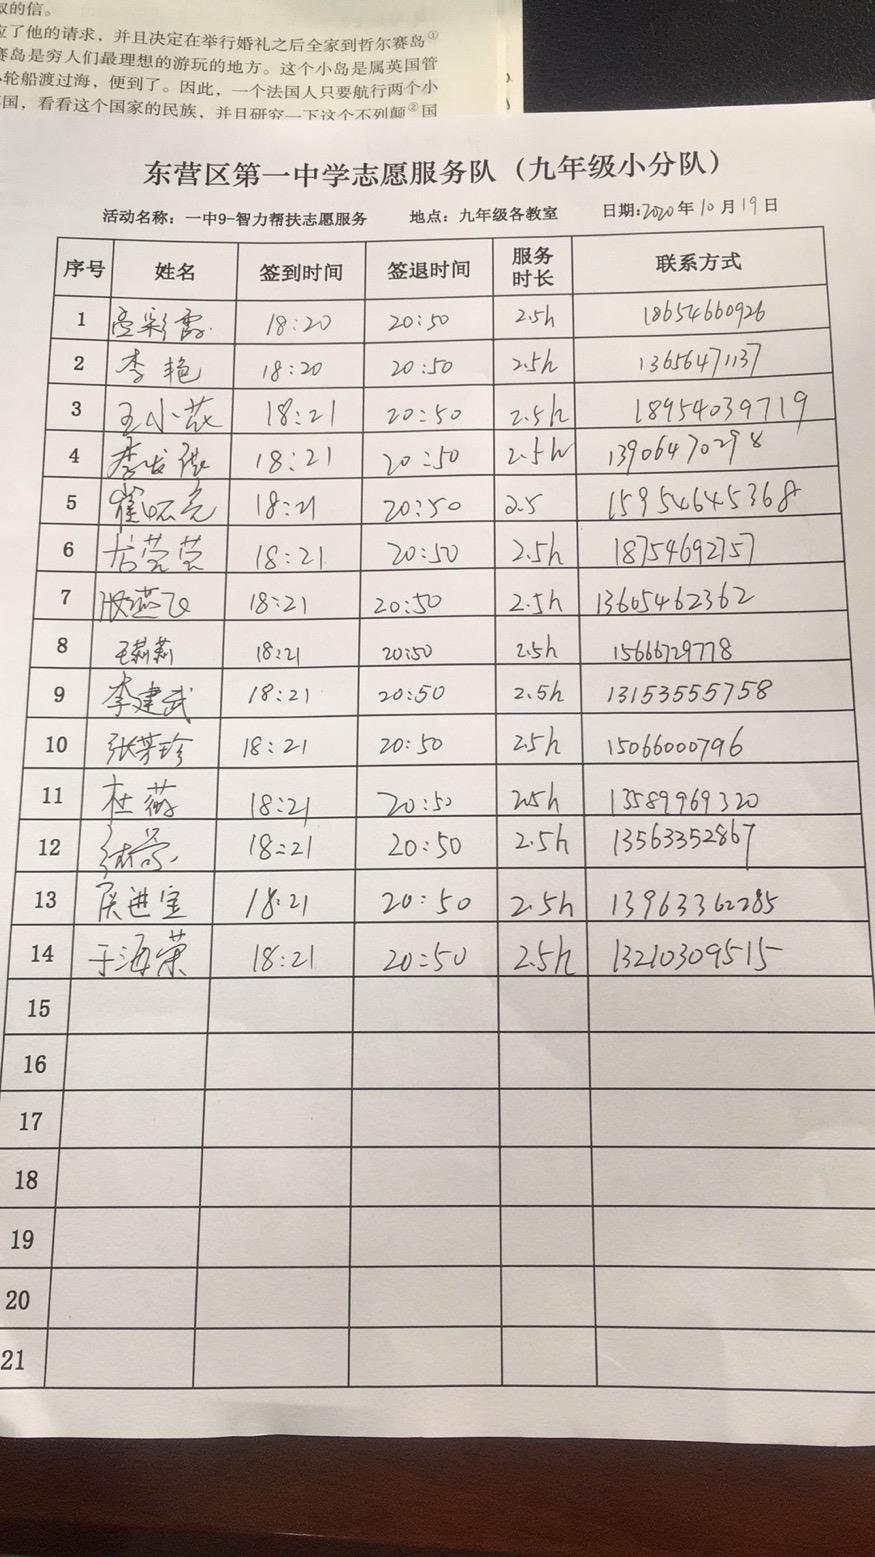 叔的信。
应了他的请求，并且决定在举行婚礼之后全家到哲尔赛岛①
赛岛是穷人们最理想的游玩的地方。这个小岛是属英国管
轮船渡过海，便到了。因此，一个法国人只要航行两个小
国，看看这个国家的民族，并且研究一下这个不列颠②国
东营区第一中学志愿服务队（九年级小分队）
活动名称：一中9-智力帮扶志愿服务 地点：九年级各教室 日期:2020年10月19日
序号 姓名 签到时间 签退时间 服务时长 联系方式
1 18:20 20:50 2.5h 18654660926
2 李艳 18:20 20:50 2.5h 13656471137
3 王小花 18:21 20:50 2.5h 18954039719
4 18:21 20:50 2.5h 13906470298
5 18:21 20:50 2.5 15954645368
6 18:21 20:50 2.5h 18754692757
7 18:21 20:50 2.5h 13605462362
8 王莉莉 18:21 20:50 2.5h 15666729778
9 李建武 18:21 20:50 2.5h 13153555758
10 18:21 20:50 2.5h 15066000796
11 杜薇 18:21 20:50 2.5h 13589969320
12 18:21 20:50 2.5h 13563352867
13 侯进宝 18:21 20:50 2.5h 13963362285
14 于海荣 18:21 20:50 2.5h 13210309515
15
16
17
18
19
20
21